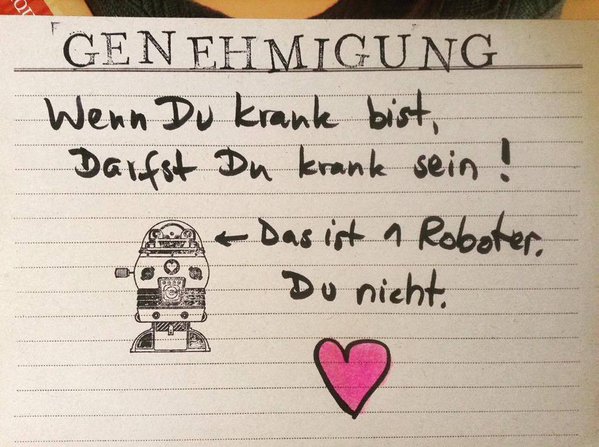 GENEHMIGUNG
Wenn Du krank bist,
Darfst Du krank sein!
← Das ist 1 Roboter.
Du nicht.